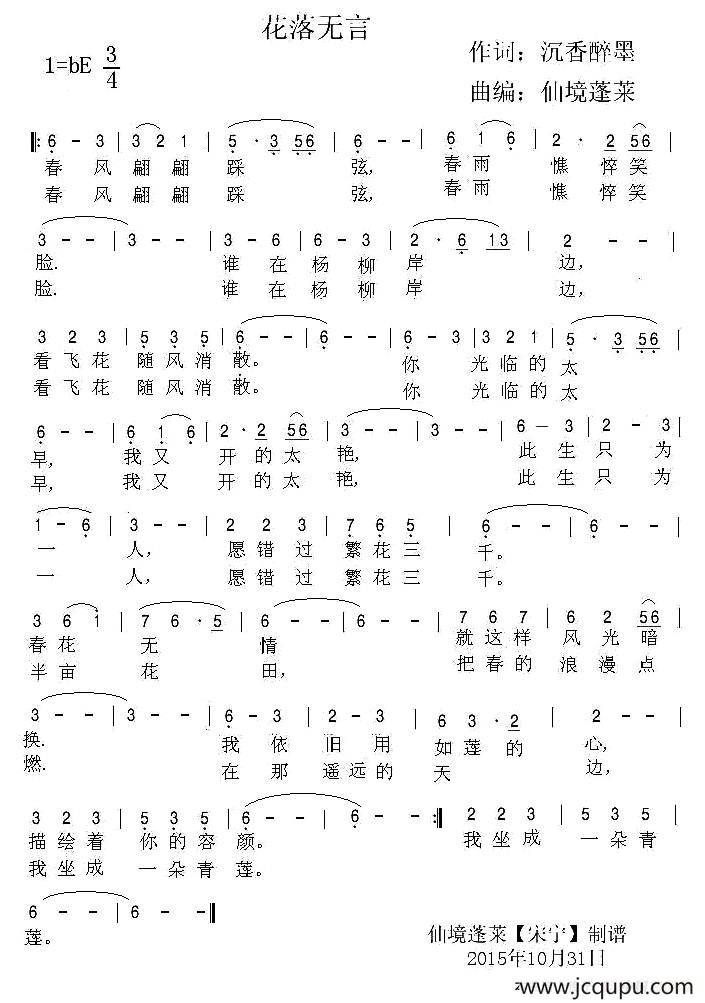 花落无言
1=bE 3/4
作词：沉香醉墨
曲编：仙境蓬莱
‖: 6 - 3 | 3 2 1 | 5 · 3 56 | 6 - - | 6 1 6 | 2 · 2 56 |
春 风 翩 翩 踩 弦, 春 雨 憔 悴 笑
春 风 翩 翩 踩 弦, 春 雨 憔 悴 笑
3 - - | 3 - - | 3 - 2 3 | 6 - 3 | 2 · 6 13 | 2 - - |
脸. 谁 在 杨 柳 岸 边,
脸. 谁 在 杨 柳 岸 边,
3 2 3 | 5 3 5 | 6 - - | 6 - - | 6 - 3 | 3 2 1 | 5 · 3 56 |
看 飞 花 随 风 消 散。 你 光 临 的 太
看 飞 花 随 风 消 散。 你 光 临 的 太
6 - - | 6 1 6 | 2 · 2 56 | 3 - - | 3 - - | 6 - 3 | 2 - 3 |
早, 我 又 开 的 太 艳, 此 生 只 为
早, 我 又 开 的 太 艳, 此 生 只 为
1 - 6 | 3 - - | 2 2 3 | 7 6 5 | 6 - - | 6 - - |
一 人, 愿 错 过 繁 花 三 千。
一 人, 愿 错 过 繁 花 三 千。
3 6 1 | 7 6 · 5 | 6 - - | 6 - - | 7 6 7 | 6 2 56 |
春 花 无 情 就 这 样 风 光 暗
半 亩 花 田, 把 春 的 浪 漫 点
3 - - | 3 - - | 6 - 3 | 2 - 3 | 6 3 · 2 | 2 - - |
换. 我 依 旧 用 如 莲 的 心,
燃. 在 那 遥 远 的 天 边,
3 2 3 | 5 3 5 | 6 - - | 6 - - :‖ 3 2 3 | 5 3 5 |
描 绘 着 你 的 容 颜。 我 坐 成 一 朵 青
我 坐 成 一 朵 青 莲。
6 - - | 6 - - ‖
莲。
仙境蓬莱【宋宁】制谱
2015年10月31日
www.jcqupu.com